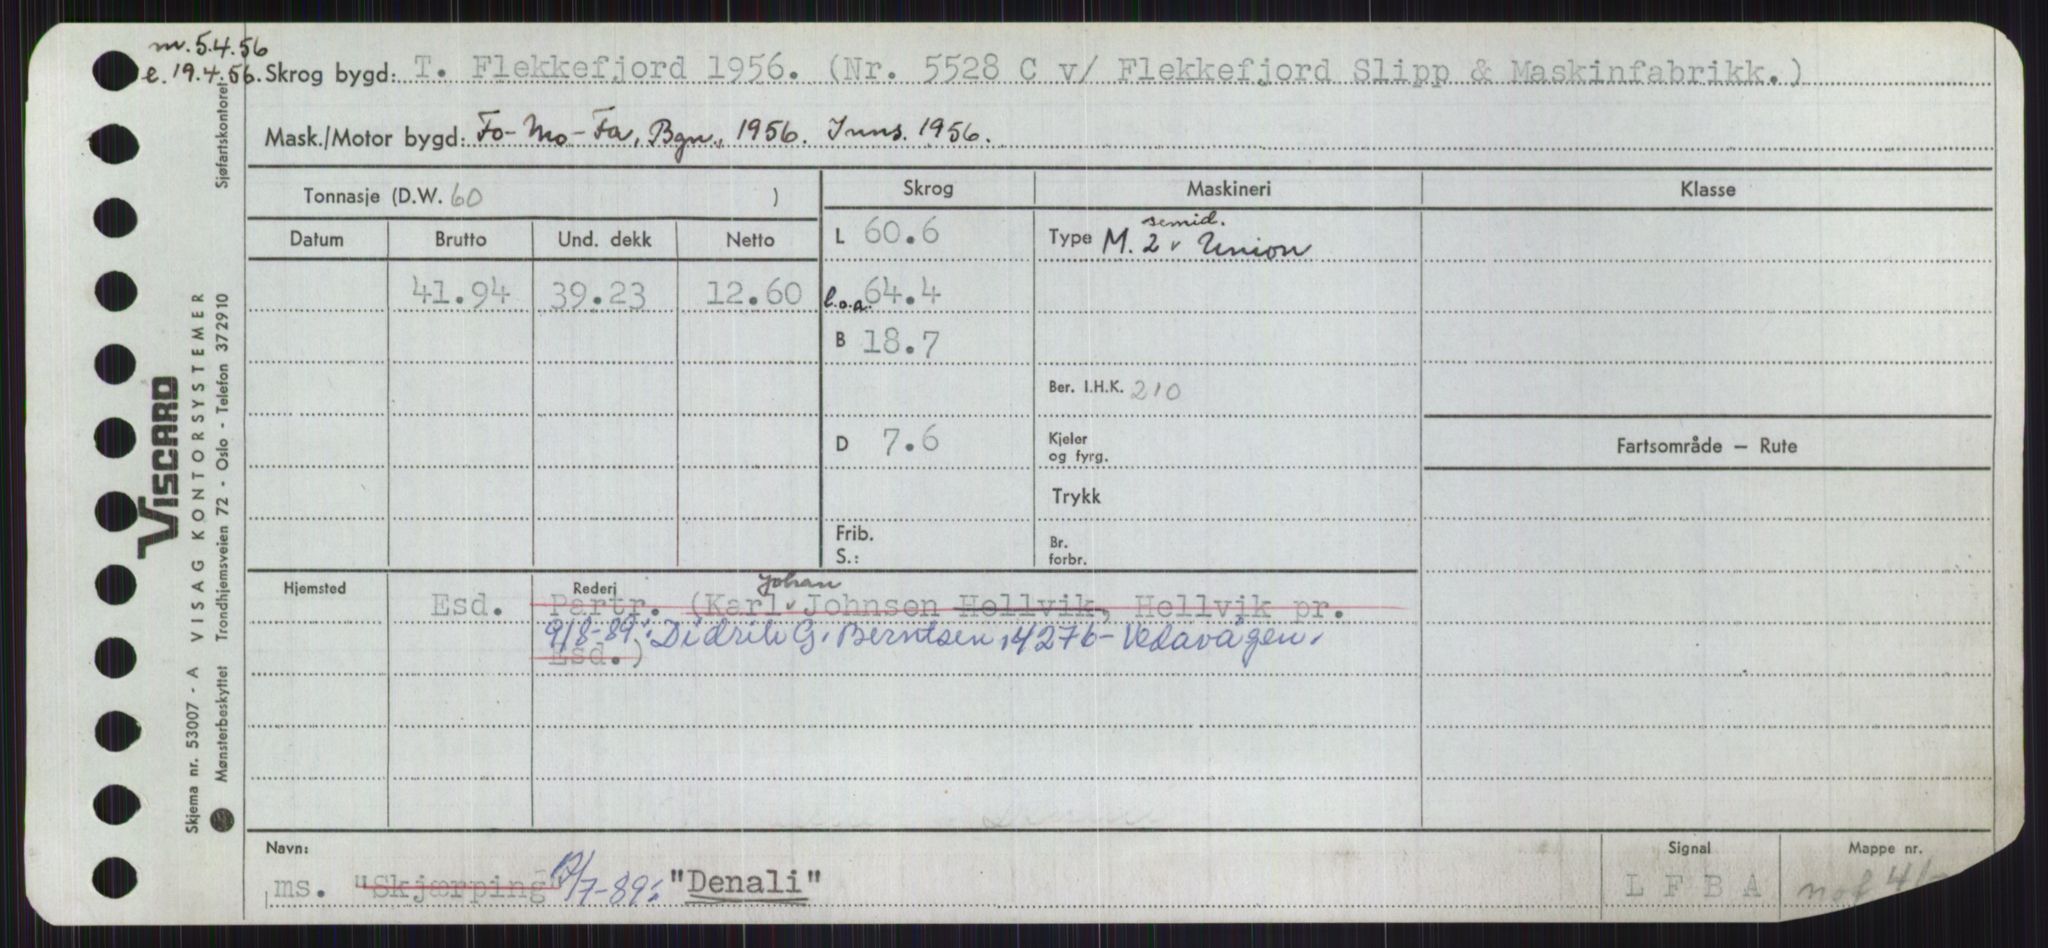 m. 5.4.56
e. 19.4.56. Skrog bygd: T. Flekkefjord 1956. (Nr. 5528 C v/ Flekkefjord Slipp & Maskinfabrikk.)
Mask./Motor bygd: Fo-Mo-Fa, Bgn., 1956. Inns. 1956.
Sjøfartskontoret
Tonnasje (D.W. 60 )
Skrog
Maskineri
Klasse
Datum Brutto Und. dekk Netto
L 60.6
semid.
Type M. 2 v Union
41.94 39.23 12.60
l.o.a. 64.4
B 18.7
Ber. I.H.K. 210
D 7.6
Kjeler
og fyrg.
Fartsområde – Rute
Trykk
Frib.
S.:
Br.
forbr.
Hjemsted Rederi
Johan
Esd. Partr. (Karl v Johnsen Hellvik, Hellvik pr.
9/8-89: Didrik G. Berntsen, 4276 - Vedavågen.
Esd.)
Navn:
Signal
Mappe nr.
ms. "Skjærping" /7-89: "Denali"
L F B A
VISCARD
VISAG KONTORSYSTEMER
Skjema nr. 53007 - A
Mønsterbeskyttet Trondhjemsveien 72 - Oslo - Telefon 372910